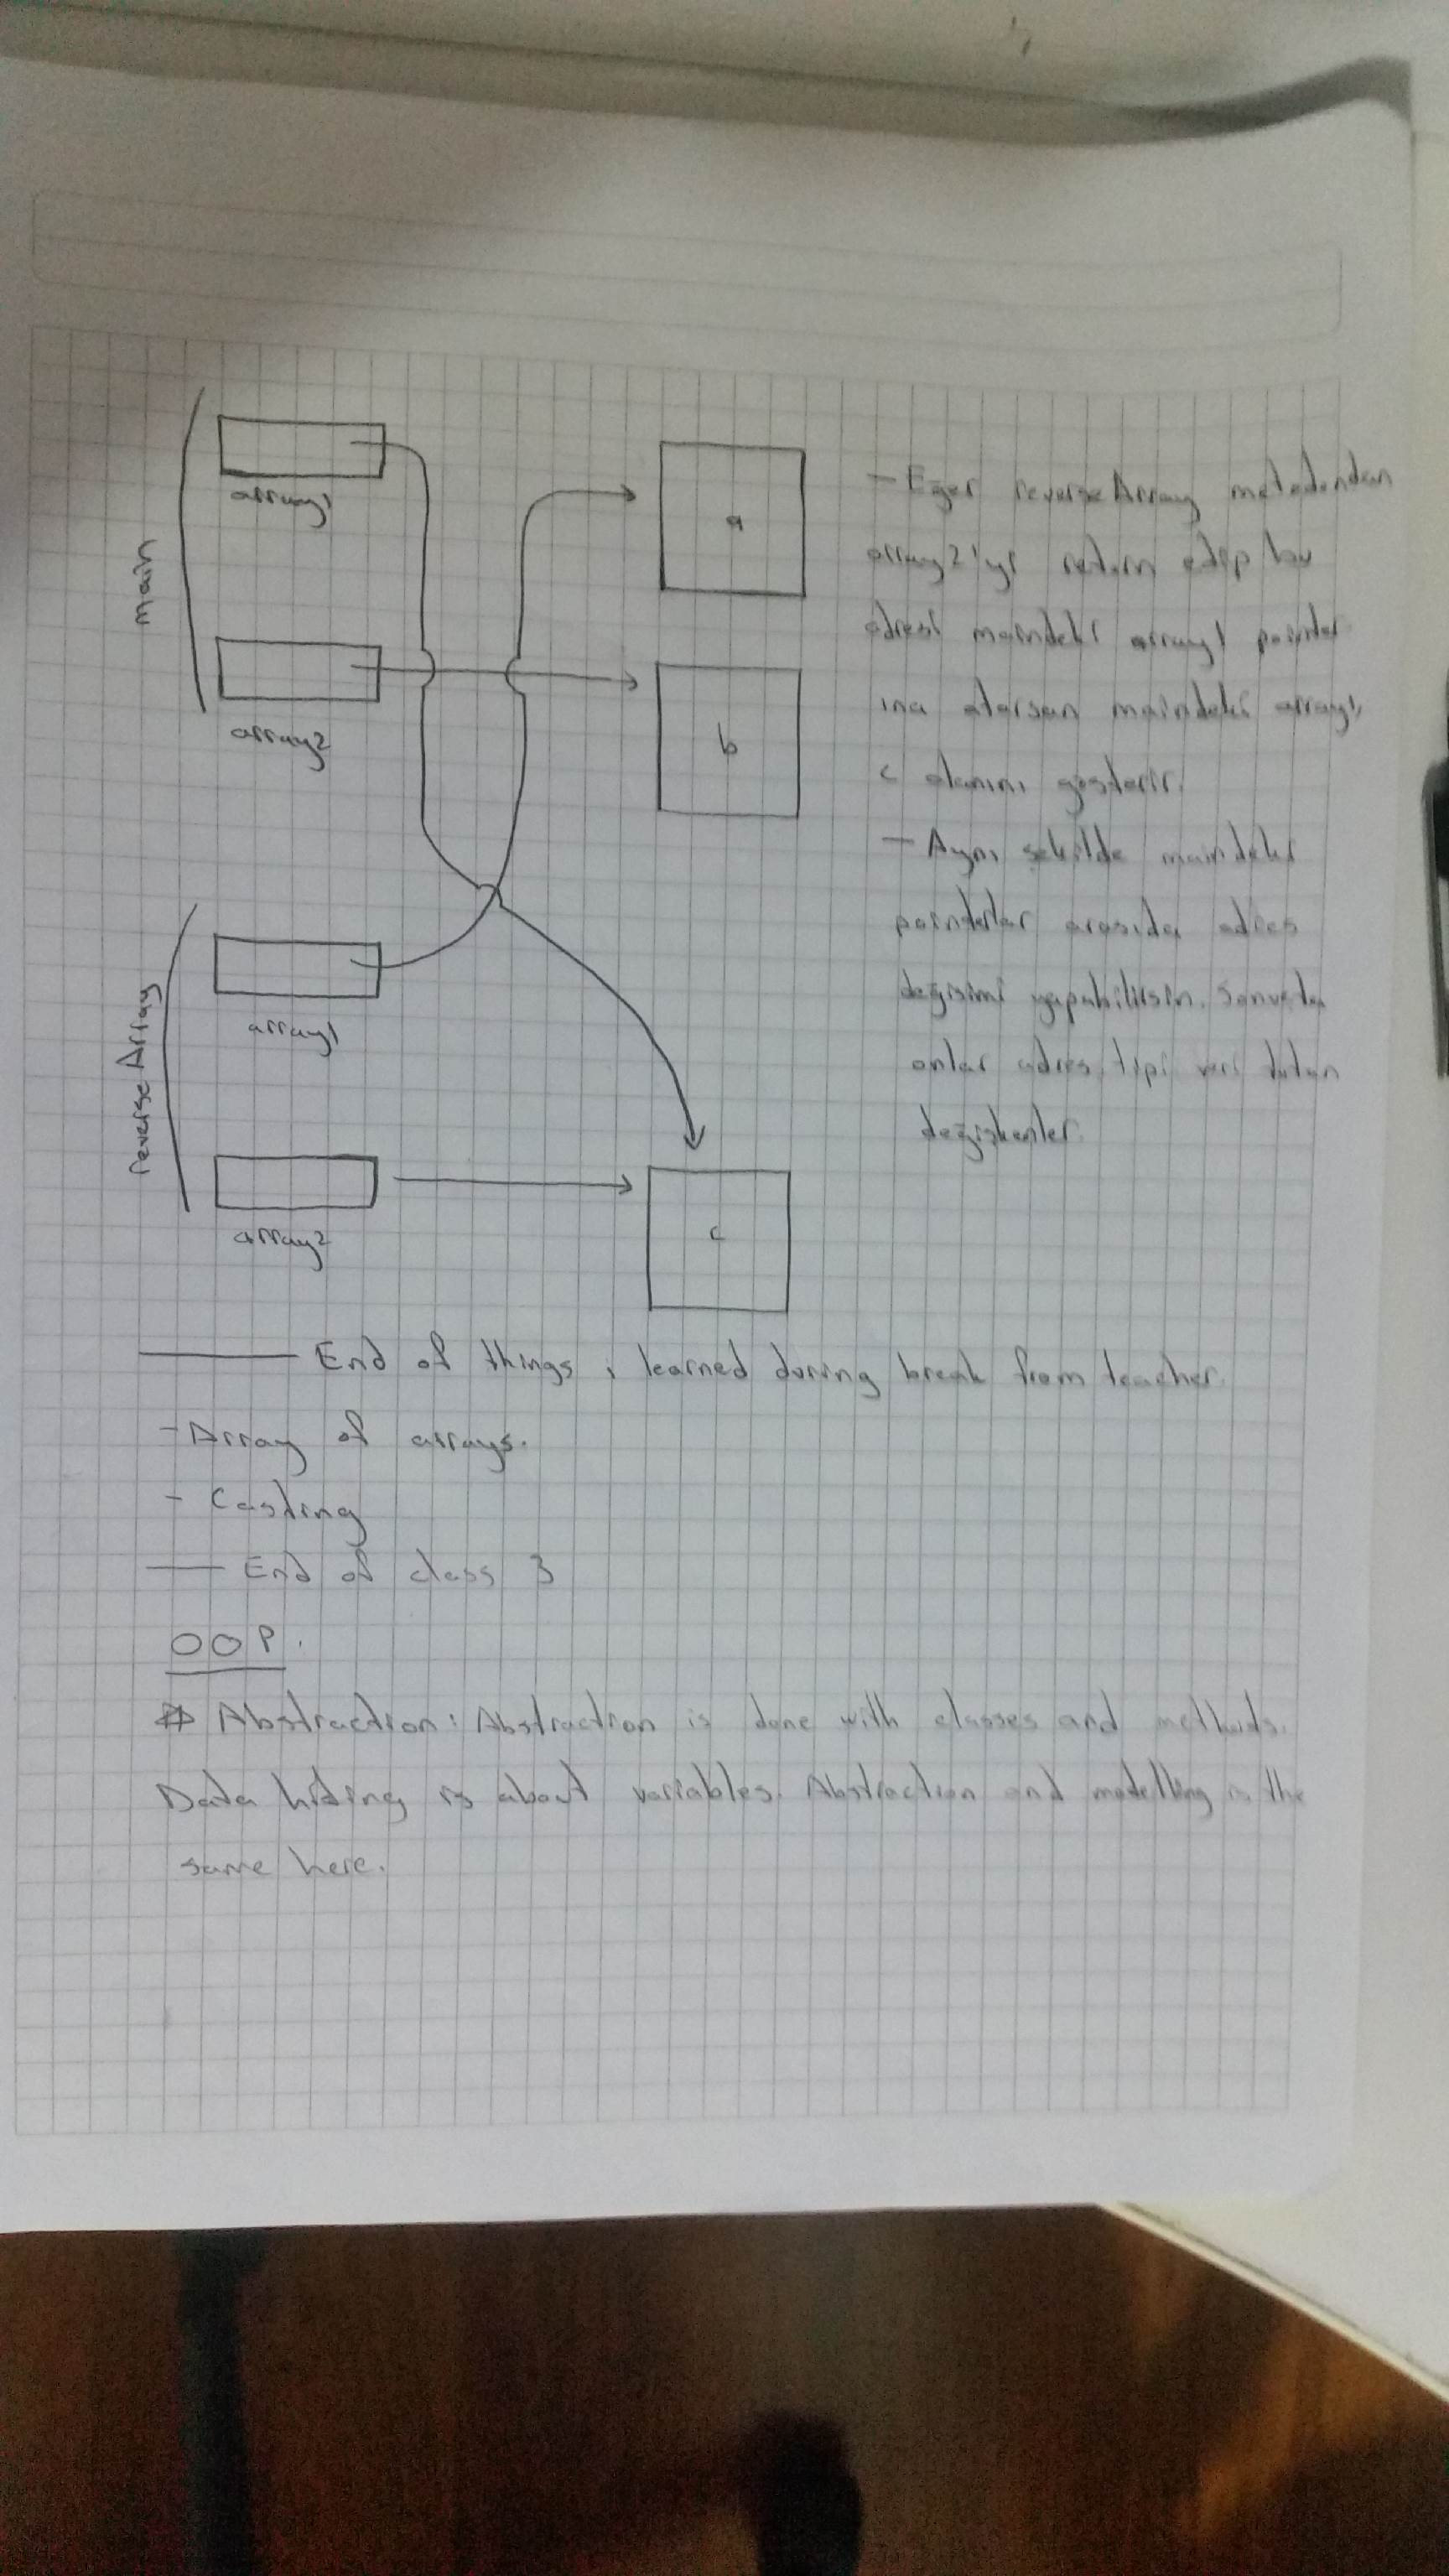 main
array1
a
array2
b
- Eger reverseArray metodundan
array2'yi return edip bu
adresi maindeki array1 pointer
ına atarsan maindeki array1,
c alanını gösterir.
- Aynı sekilde maindeki
pointerlar arasıda adres
degisimi yapabilirsin. Sonucta
onlar adres tipi veri tutan
degiskenler.
reverseArray
array1
array2
c
End of things, learned during break from teacher.
- Array of arrays.
- Casting
End of class 3
OOP.
# Abstraction: Abstraction is done with classes and methods.
Data hiding is about variables. Abstraction and modelling is the
same here.